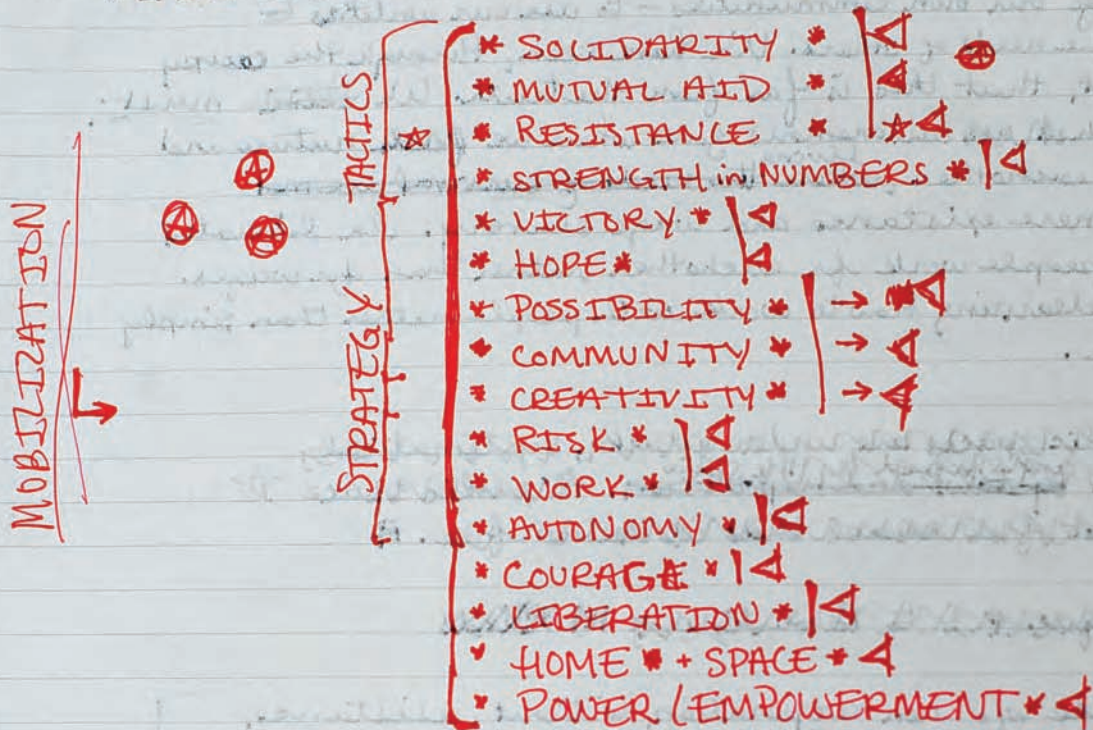 MOBILIZATION
TACTICS
STRATEGY
* SOLIDARITY *
* MUTUAL AID *
* RESISTANCE *
* STRENGTH in NUMBERS *
* VICTORY *
* HOPE *
* POSSIBILITY *
* COMMUNITY *
* CREATIVITY *
* RISK *
* WORK *
* AUTONOMY *
* COURAGE *
* LIBERATION *
* HOME * + SPACE *
* POWER / EMPOWERMENT *